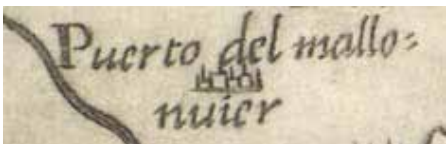 Puerto del mallo=
nuier